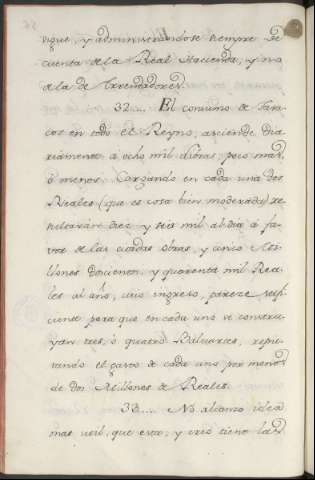 digue, y administrandose siempre de
cuenta de la Real Hacienda, y no
de la de Arrendadores.
32... El consumo de
cos en todo el Reyno, asciende dia-
riamente á ocho mil libras, poco mas,
ó menos. Cargando en cada una dos
Reales (que es cosa bien moderada) re-
sultarán diez, y seis mil al dia á fa-
vor de las citadas obras, y cinco Mi-
llones docientos, y quarenta mil Rea-
les al año, cuio ingreso, pareze sufi-
ciente para que en cada uno se constru-
yan tres, ó quatro Baluartes, repu-
tando el gasto de cada uno por menos
de dos Millones de Reales.
33.... No alcanso idea
mas util, que esta; y creo tiene las